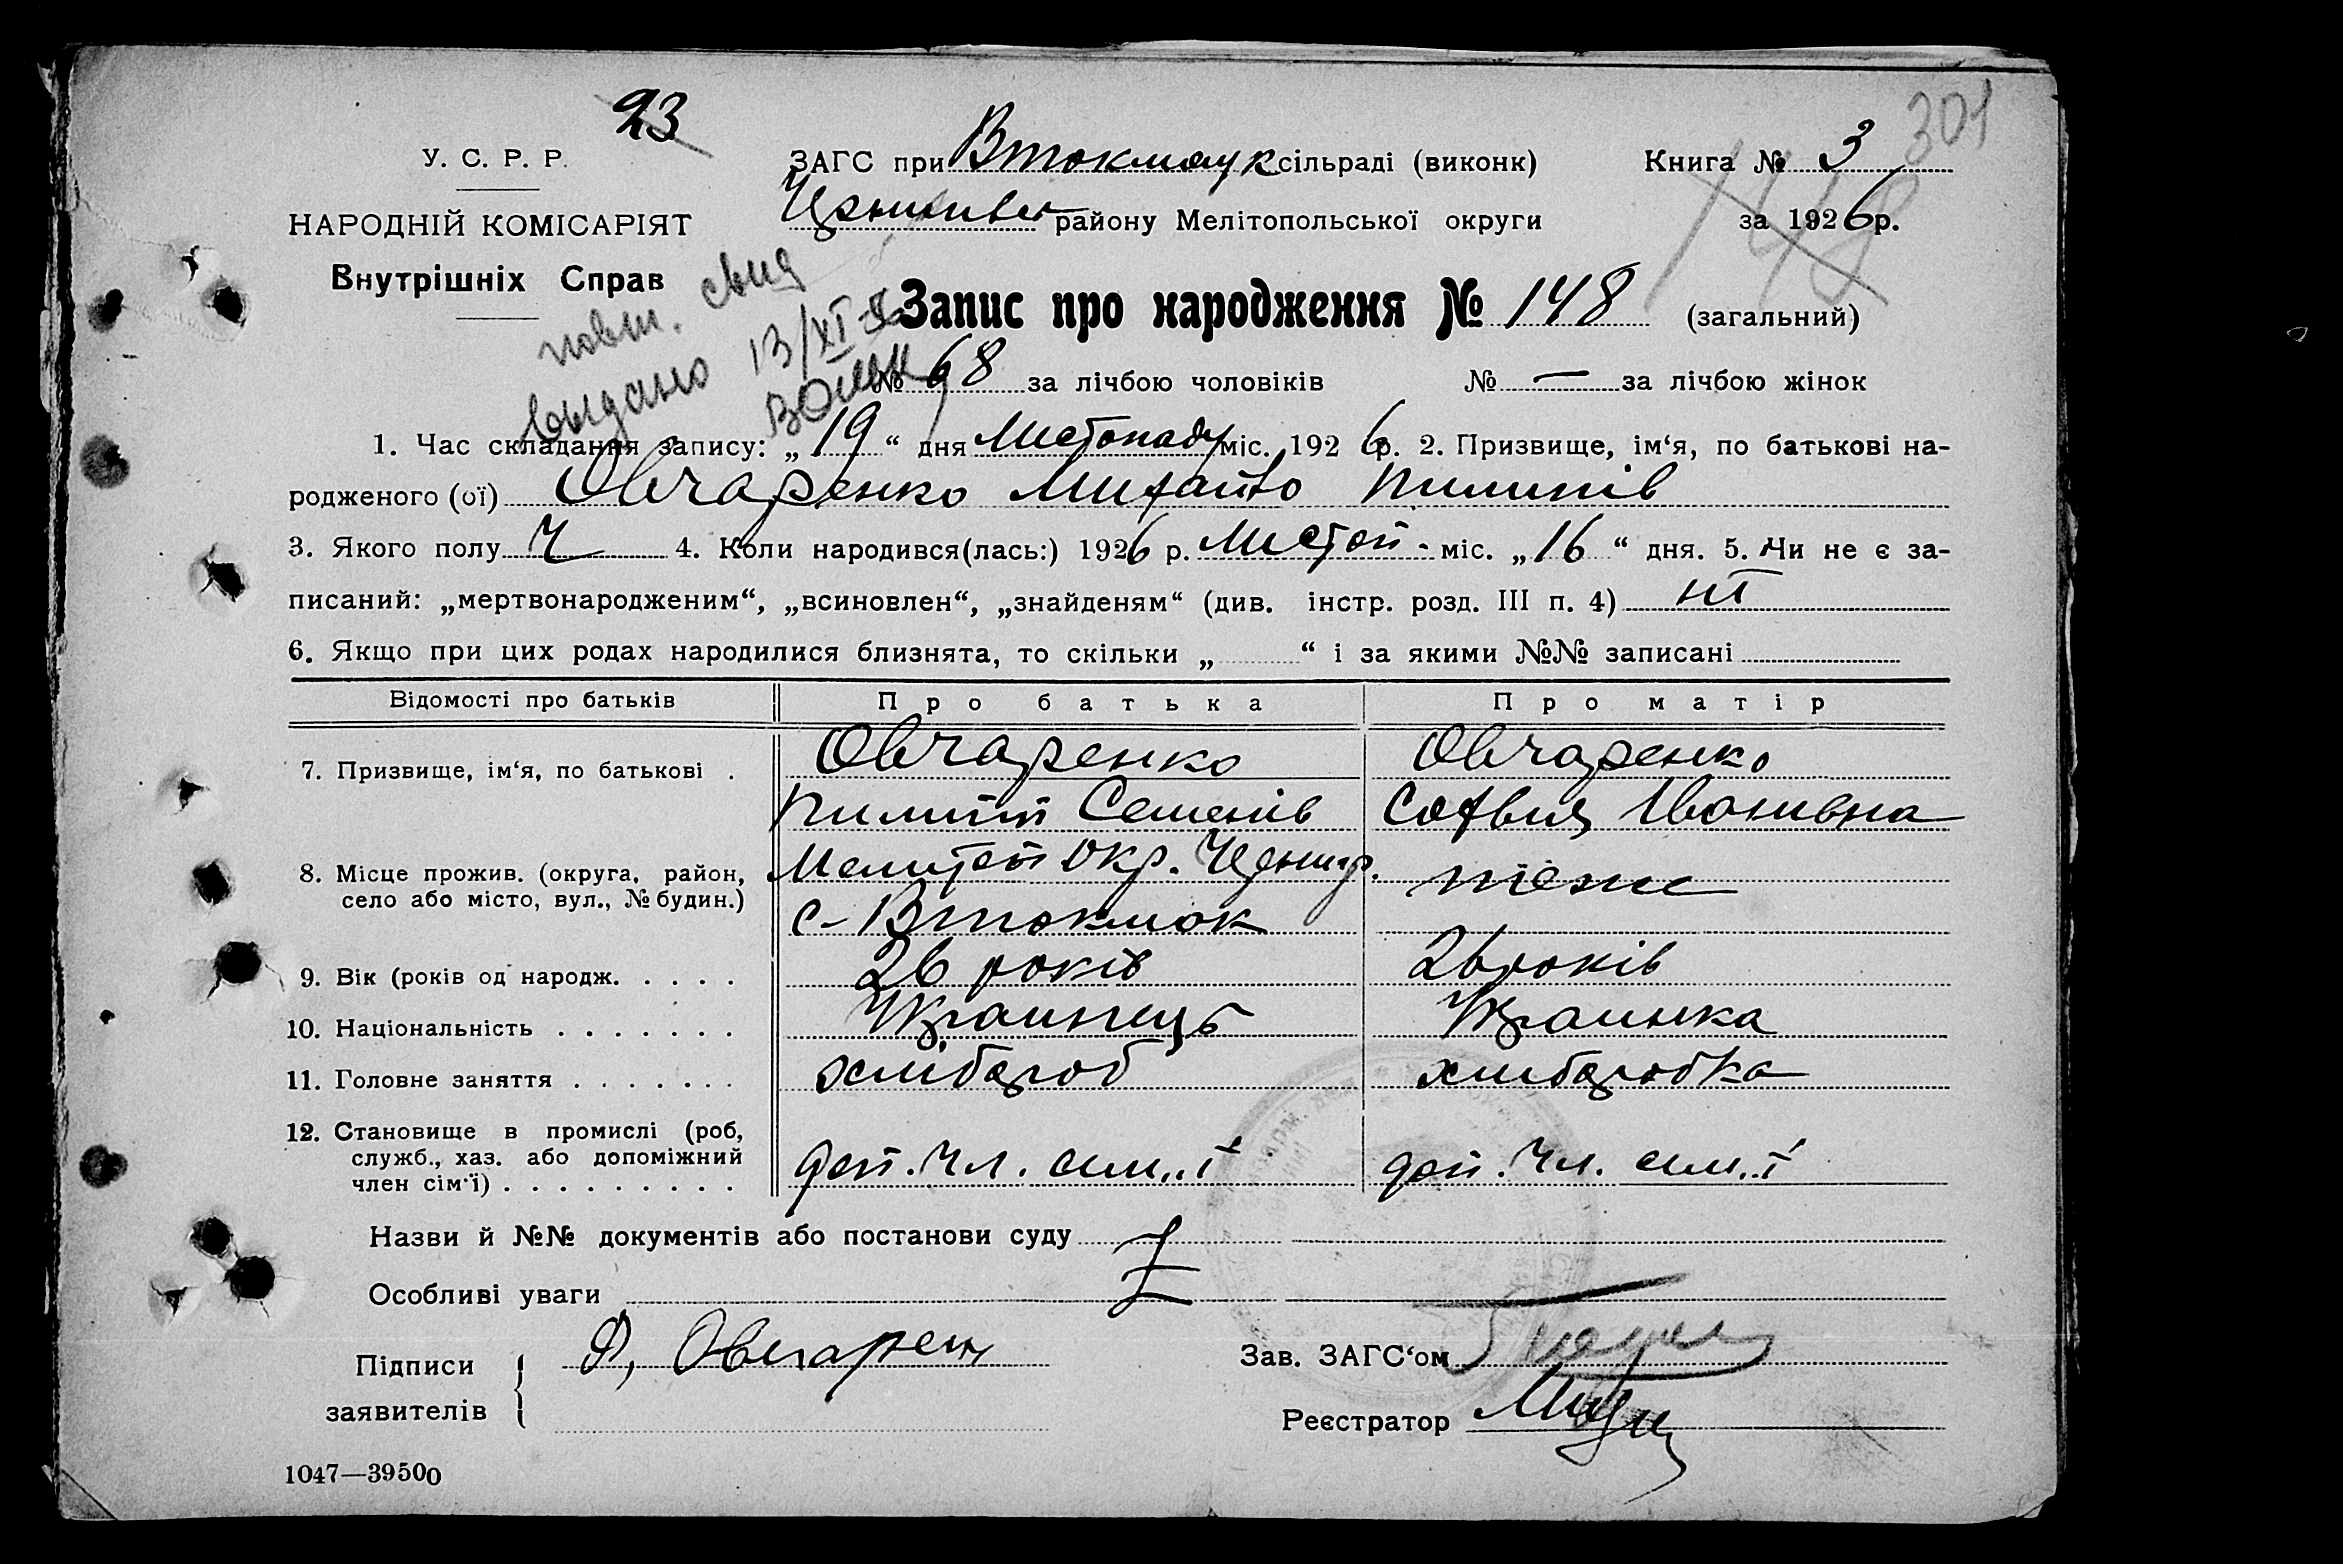 23
301
У. С. Р. Р. ЗАГС при Втокмацк сільраді (виконк) Книга № 3
НАРОДНІЙ КОМІСАРІЯТ району Мелітопольської округи за 1926р.
148
Внутрішніх Справ
повт. свид
выдано 13/XI
Запис про народження № 148 (загальний)
№ 68 за лічбою чоловіків № — за лічбою жінок
1. Час складання запису: „19“ дня Листопаду міс. 1926р. 2. Призвище, ім‘я, по батькові на-
родженого (ої) Овчаренко Михайло Пилипів
3. Якого полу Ч 4. Коли народився(лась:) 1926 р. Листоп. міс. „16“ дня. 5. Чи не є за-
писаний: „мертвонародженим“, „всиновлен“, „знайденям“ (див. інстр. розд. III п. 4) ні
6. Якщо при цих родах народилися близнята, то скільки „ “ і за якими №№ записані
Відомості про батьків Про батька Про матір
7. Призвище, ім‘я, по батькові . Овчаренко Овчаренко
Пилип Семенів Софвия Іванивна
8. Місце прожив. (округа, район, село або місто, вул., № будин.) Мелитоп Окр. теж
с. Втокмак
9. Вік (років од народж. . . . . 26 років 26 років
10. Національність . . . . . . . Украинець Украинка
11. Головне заняття . . . . . . . хлібороб хлиборобка
12. Становище в промислі (роб,
служб., хаз. або допоміжний
член сім‘ї) . . . . . . . . . доп. чл. сим..ї доп. чл. сим..ї
Назви й №№ документів або постанови суду
Особливі уваги
Підписи заявителів Ф, Овчарен Зав. ЗАГС‘ом
Реєстратор
1047—39500